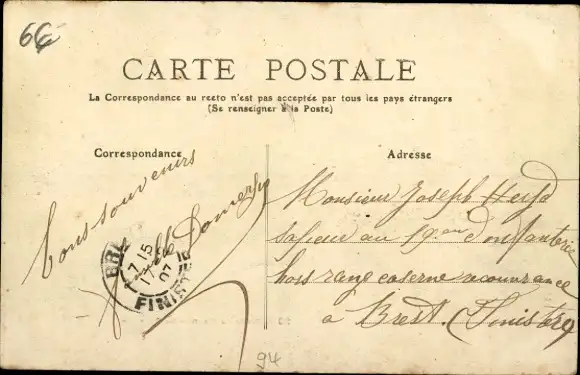 66
CARTE POSTALE
La Correspondance au recto n'est pas acceptée par tous les pays étrangers
(Se renseigner à la Poste)
Correspondance
Bons souvenirs
Domergue
BRE
7 15
07
FINIS
Adresse
Monsieur Joseph
sapeur au 19eme d'infanterie
hors rang caserne recouvrance
à Brest. (Finistère)
94